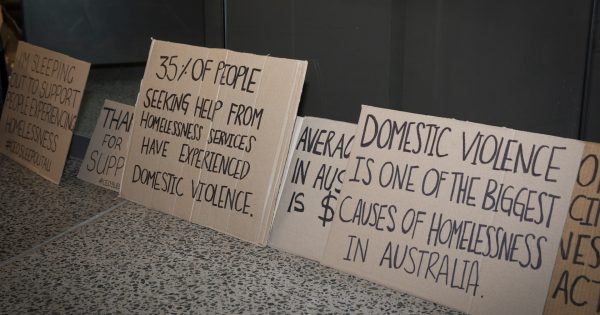 I'M SLEEPING
OUT TO SUPPORT
PEOPLE EXPERIENCING
HOMELESSNESS
THAN
FOR
SUPP
35% OF PEOPLE
SEEKING HELP FROM
HOMELESSNESS SERVICES
HAVE EXPERIENCED
DOMESTIC VIOLENCE.
AVERAG
IN AUS
IS $
DOMESTIC VIOLENCE
IS ONE OF THE BIGGEST
CAUSES OF HOMELESSNESS
IN AUSTRALIA.
NES
ACT